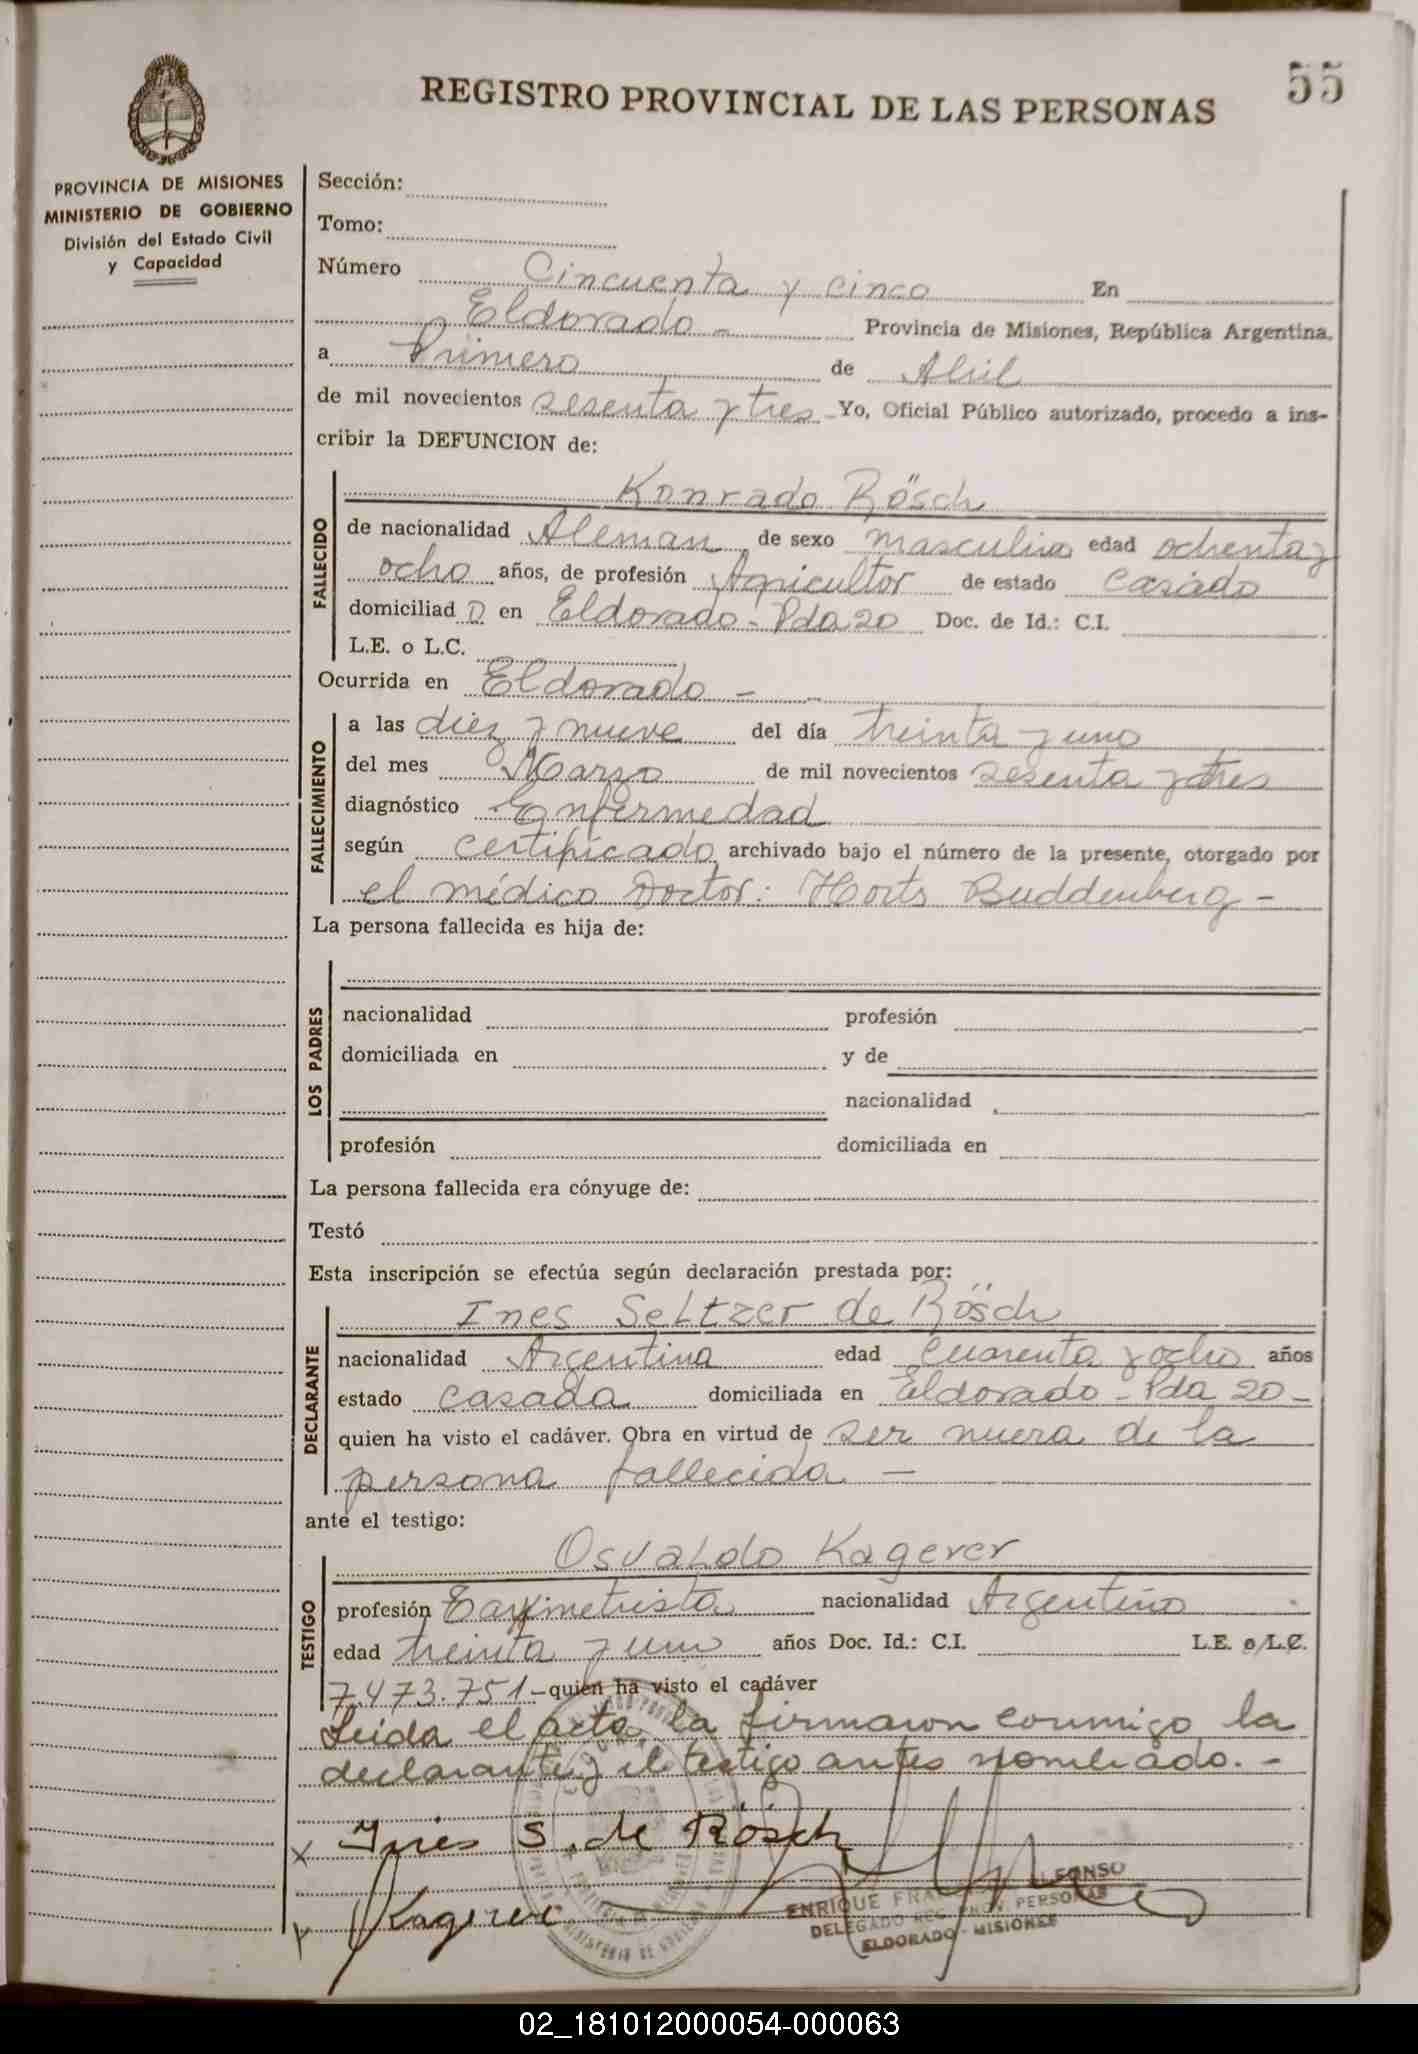 55
REGISTRO PROVINCIAL DE LAS PERSONAS
PROVINCIA DE MISIONES
MINISTERIO DE GOBIERNO
División del Estado Civil
y Capacidad
Sección:
Tomo:
Número Cincuenta y cinco En
Eldorado - Provincia de Misiones, República Argentina.
a Primero de Abril
de mil novecientos sesenta y tres Yo, Oficial Público autorizado, procedo a ins-
cribir la DEFUNCION de:
FALLECIDO
Konrado Rösch
de nacionalidad Aleman de sexo masculino edad ochenta y
ocho años, de profesión Agricultor de estado casado
domiciliad o en Eldorado - Pda 20 Doc. de Id.: C.I.
L.E. o L.C.
Ocurrida en Eldorado -
FALLECIMIENTO
a las diez y nueve del día treinta y uno
del mes Marzo de mil novecientos sesenta y tres
diagnóstico Enfermedad
según certificado archivado bajo el número de la presente, otorgado por
el médico Doctor: Horts Buddenberg -
La persona fallecida es hija de:
LOS PADRES
nacionalidad profesión
domiciliada en y de
nacionalidad
profesión domiciliada en
La persona fallecida era cónyuge de:
Testó
Esta inscripción se efectúa según declaración prestada por:
DECLARANTE
Ines Seltzer de Rösch
nacionalidad Argentina edad cuarenta y ocho años
estado casada domiciliada en Eldorado - Pda 20 -
quien ha visto el cadáver. Obra en virtud de ser nuera de la
persona fallecida -
ante el testigo:
TESTIGO
Osvaldo Kagerer
profesión Taximetrista nacionalidad Argentino
edad treinta y un años Doc. Id.: C.I. L.E. o L.C.
7.473.751 - quien ha visto el cadáver
Leida el acta, la firmaron conmigo la
declarante y el testigo antes nombrado. -
x Inés S. de Rösch
Kagerer
ENRIQUE
DELEGADO REG. PROV. PERSONAS
ELDORADO - MISIONES
02_181012000054-000063